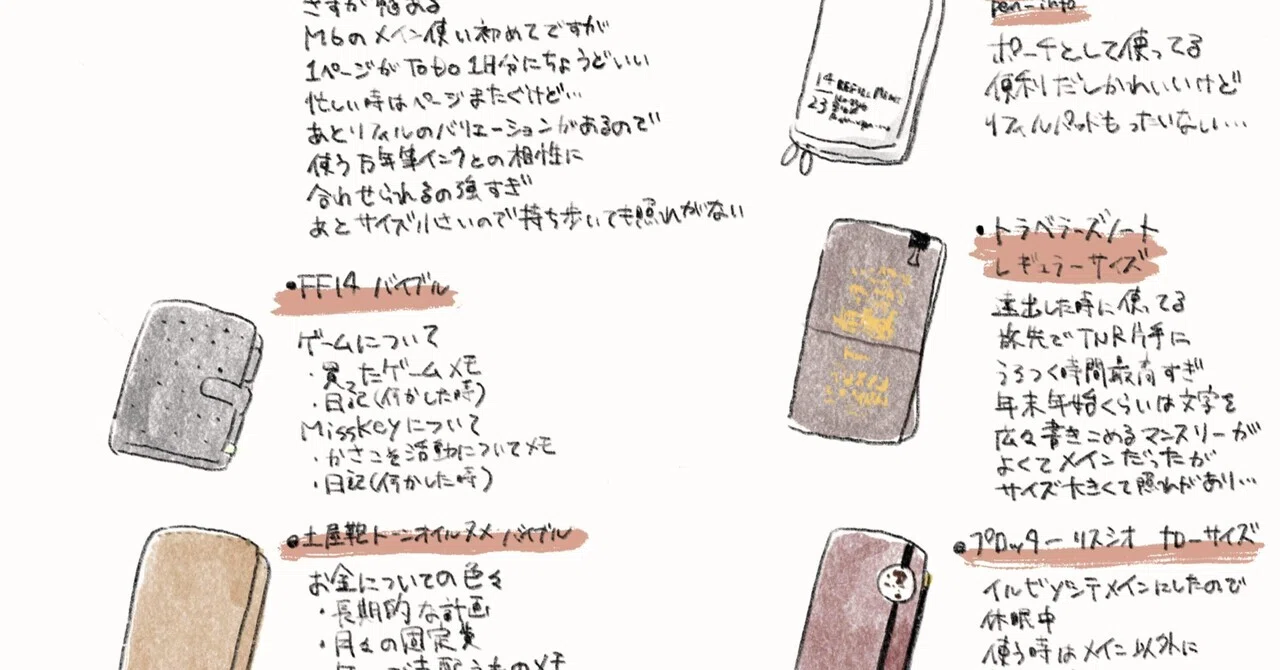 さすが幅ある
M6のメイン使い初めてですが
1ページがToDo1日分にちょうどいい
忙しい時はページまたぐけど…
あとリフィルのバリエーションがあるので
使う万年筆インクとの相性に
合わせられるの強すぎ
あとサイズ小さいので持ち歩いても照れがない
•FF14 バイブル
ゲームについて
・買ったゲームメモ
・日記(何かした時)
Misskeyについて
・かさこそ活動についてメモ
・日記(何かした時)
•土屋鞄トーンオイルヌメ バイブル
お金についての色々
・長期的な計画
・月々の固定費
pen-info
ポーチとして使ってる
便利だしかわいいけど
リフィルパッドもったいない…
14 REFILL
23
•トラベラーズノート
レギュラーサイズ
遠出した時に使ってる
旅先でTNR片手に
うろつく時間最高すぎ
年末年始くらいは文字を
広々書きこめるマンスリーが
よくてメインだったが
サイズ大きくて照れがあり…
•プロッター リスシオ ナローサイズ
イルビゾンテメインにしたので
休眠中
使う時はメイン以外に